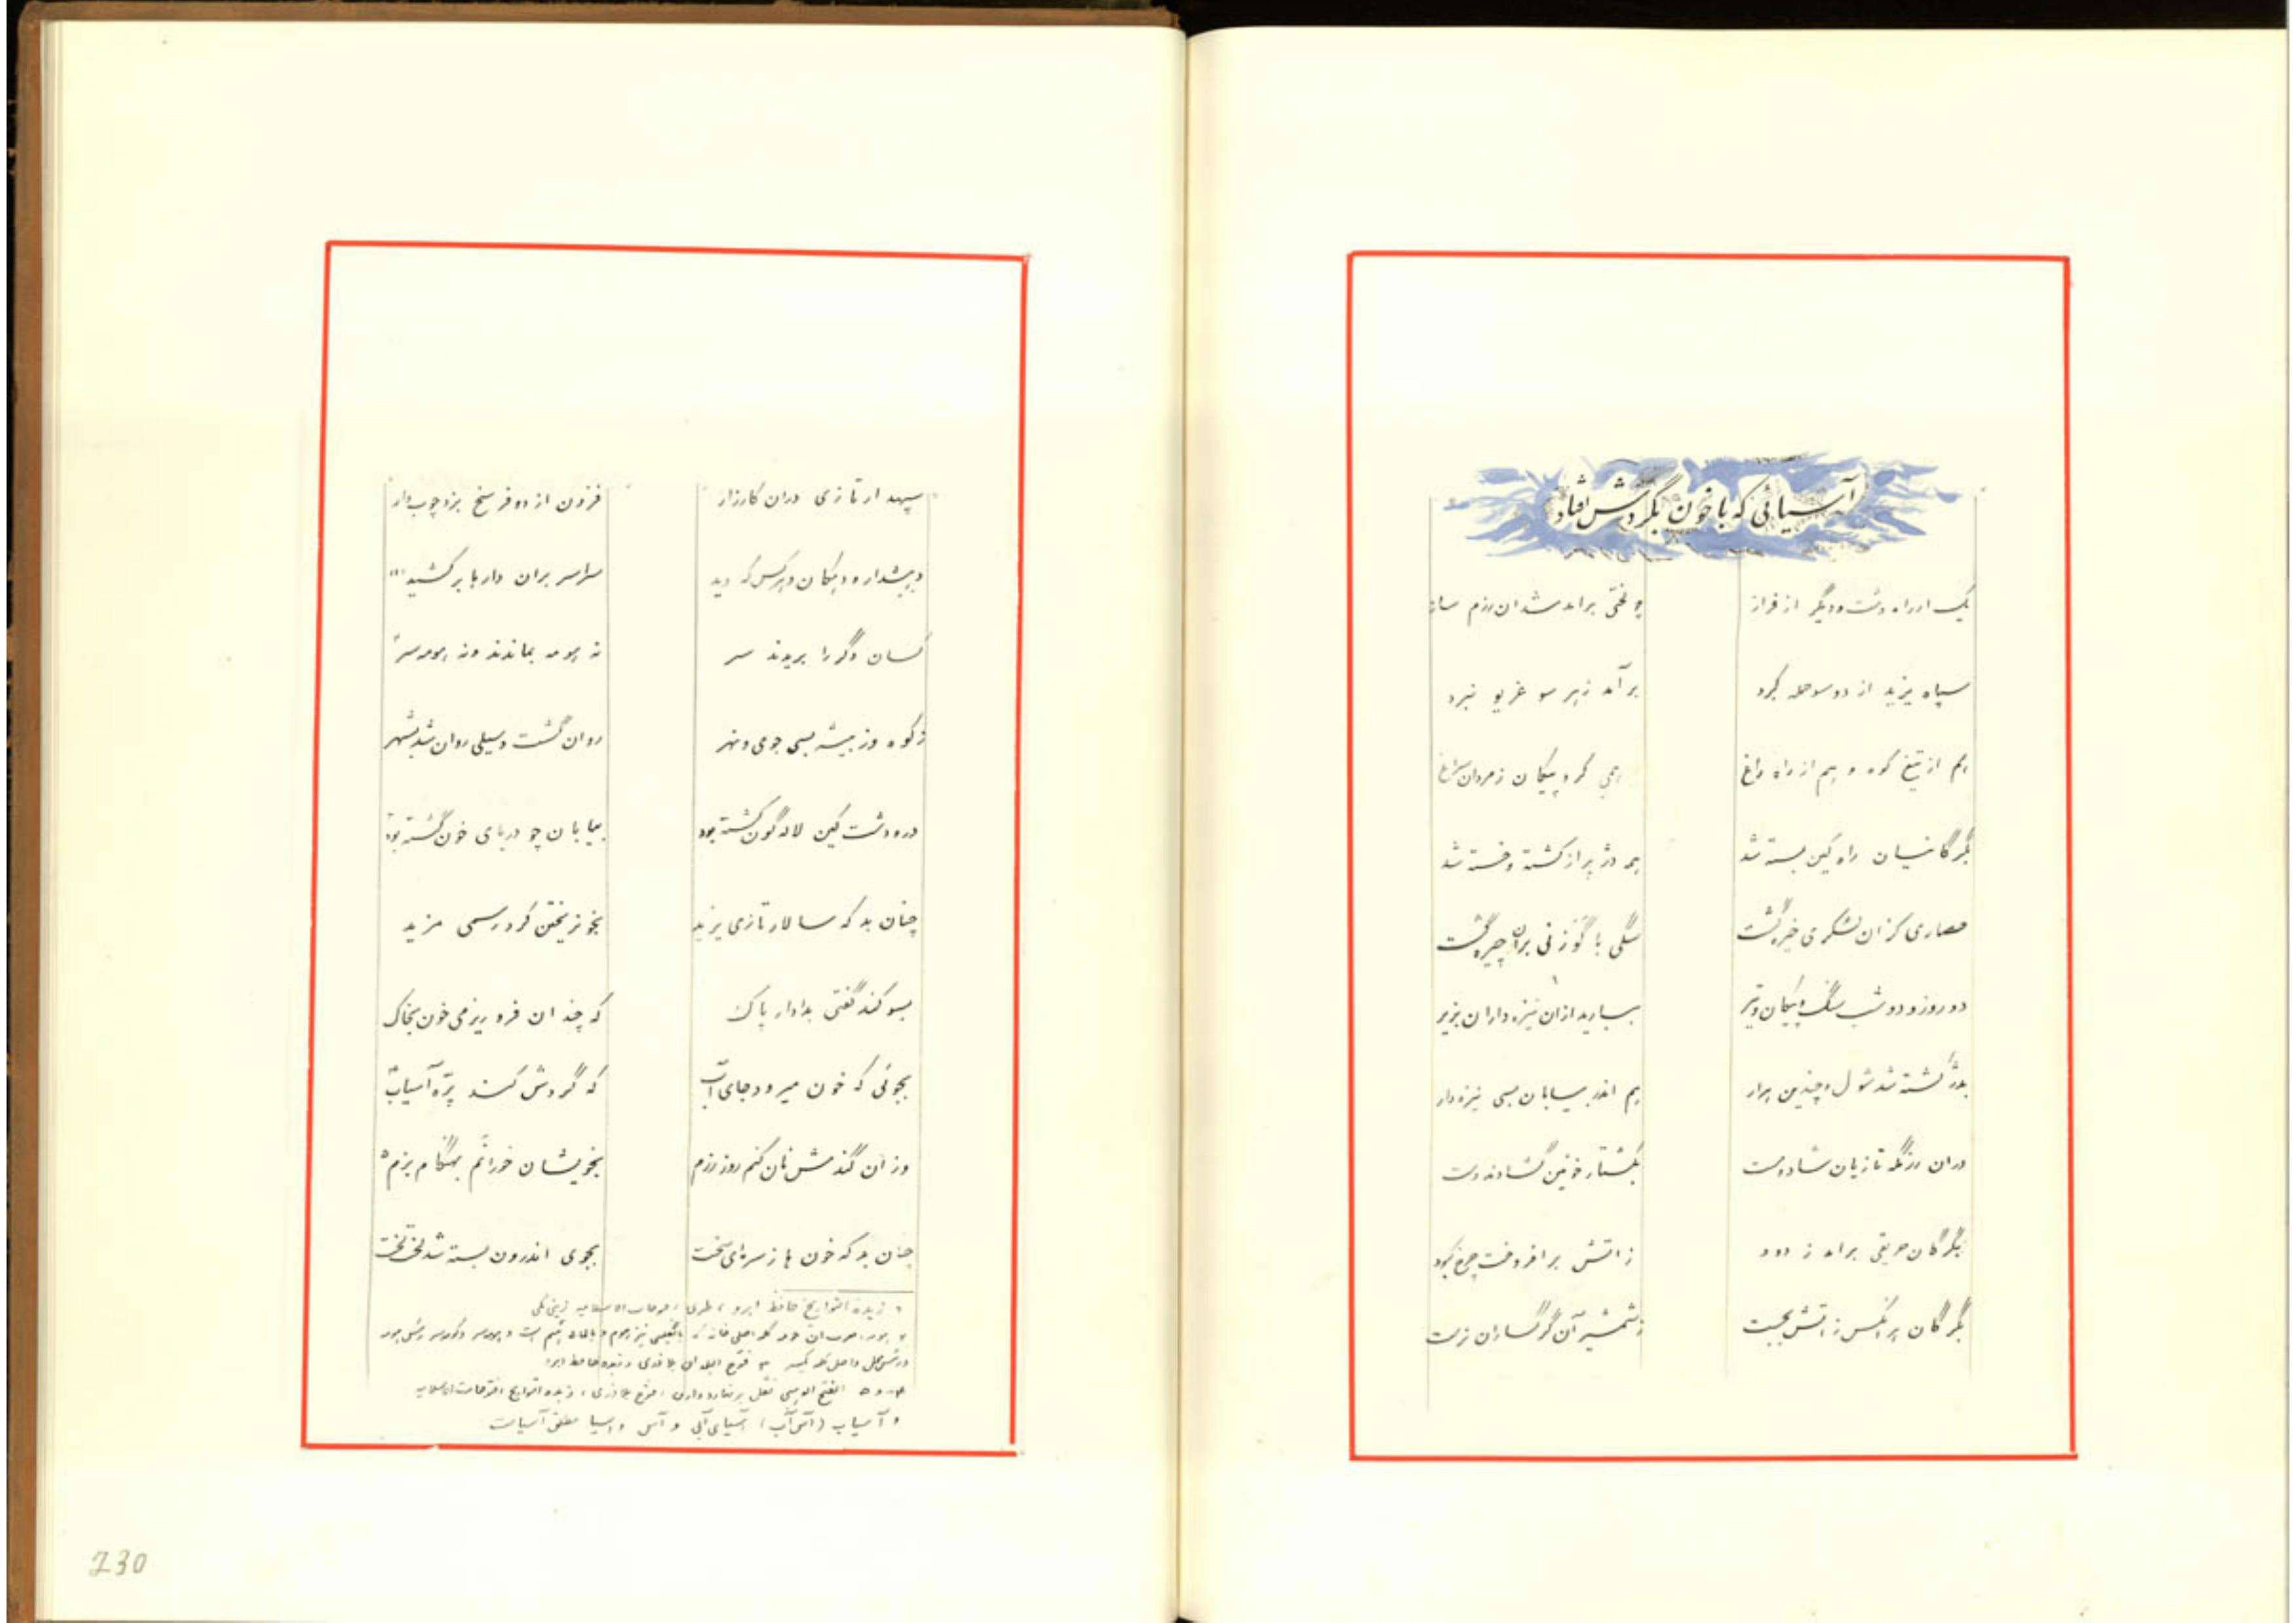 آسیائی که با خون بگردش افتاد
یک از راه دشت و دیگر از فراز
چو لختی برآمد شد آن رزم ساز
سپاه یزید از دو سو حمله کرد
برآمد ز هر سو غریو نبرد
هم از تیغ کوه و هم از راه راغ
همی کرد پیکان ز مردان سراغ
بگرگانیان راه کین بسته شد
همه دژ پر از کشته و خسته شد
حصاری کزان لشکری خیره گشت
سگی با گوزنی بران چیره گشت
دو روز و دو شب سنگ و پیکان و تیر
ببارید ازان نیزه داران بزیر
بدژ کشته شد شول و چندین هزار
هم اندر بیابان بسی نیزه دار
دران رزمگه تازیان شاد و مست
بکشتار خونین گشادند دست
بگرگان حریقی برآمد ز دود
ز آتش برافروخت چرخ کبود
بگرگان هر آنکس ز آتش بجست
ز شمشیر آن گرگساران نرست
سپهدار تازی دران کارزار
فزون از دو فرسخ بزد چوب دار
و پیشداره و پیکان و هرکس که دید
سراسر بران دارها برکشید
کسان دگر را بریدند سر
نه بومه بماندند و نه بومه سر
ز کوه و ز بیشه بسی جوی و نهر
روان گشت و سیلی روان شد بشهر
در و دشت کین لاله گون گشته بود
بیابان چو دریای خون گشته بود
چنان بد که سالار تازی یزید
بخونریختن کرد رسمی مزید
بسوکند گفتی بدادار پاک
که چندان فرو ریزمی خون بخاک
بجوئی که خون میرود جای آب
که گردش کند پرّه آسیاب
وزان گندمش نان کنم روز رزم
بخویشان خورانم بهنگام بزم
چنان بد که خون ها ز سرمای سخت
بجوی اندرون بسته شد لخت لخت
زبدة التواریخ حافظ ابرو ، طبری ، فتوحات الاسلامیه زینی
فتوح البلدان بلاذری زبده حافظ ابرو
زبدة التواریخ ، فتوحات اسلامیه
و آسیاب (آس آب) آسیای آبی و آس و آسیا مطلق آسیاست
230